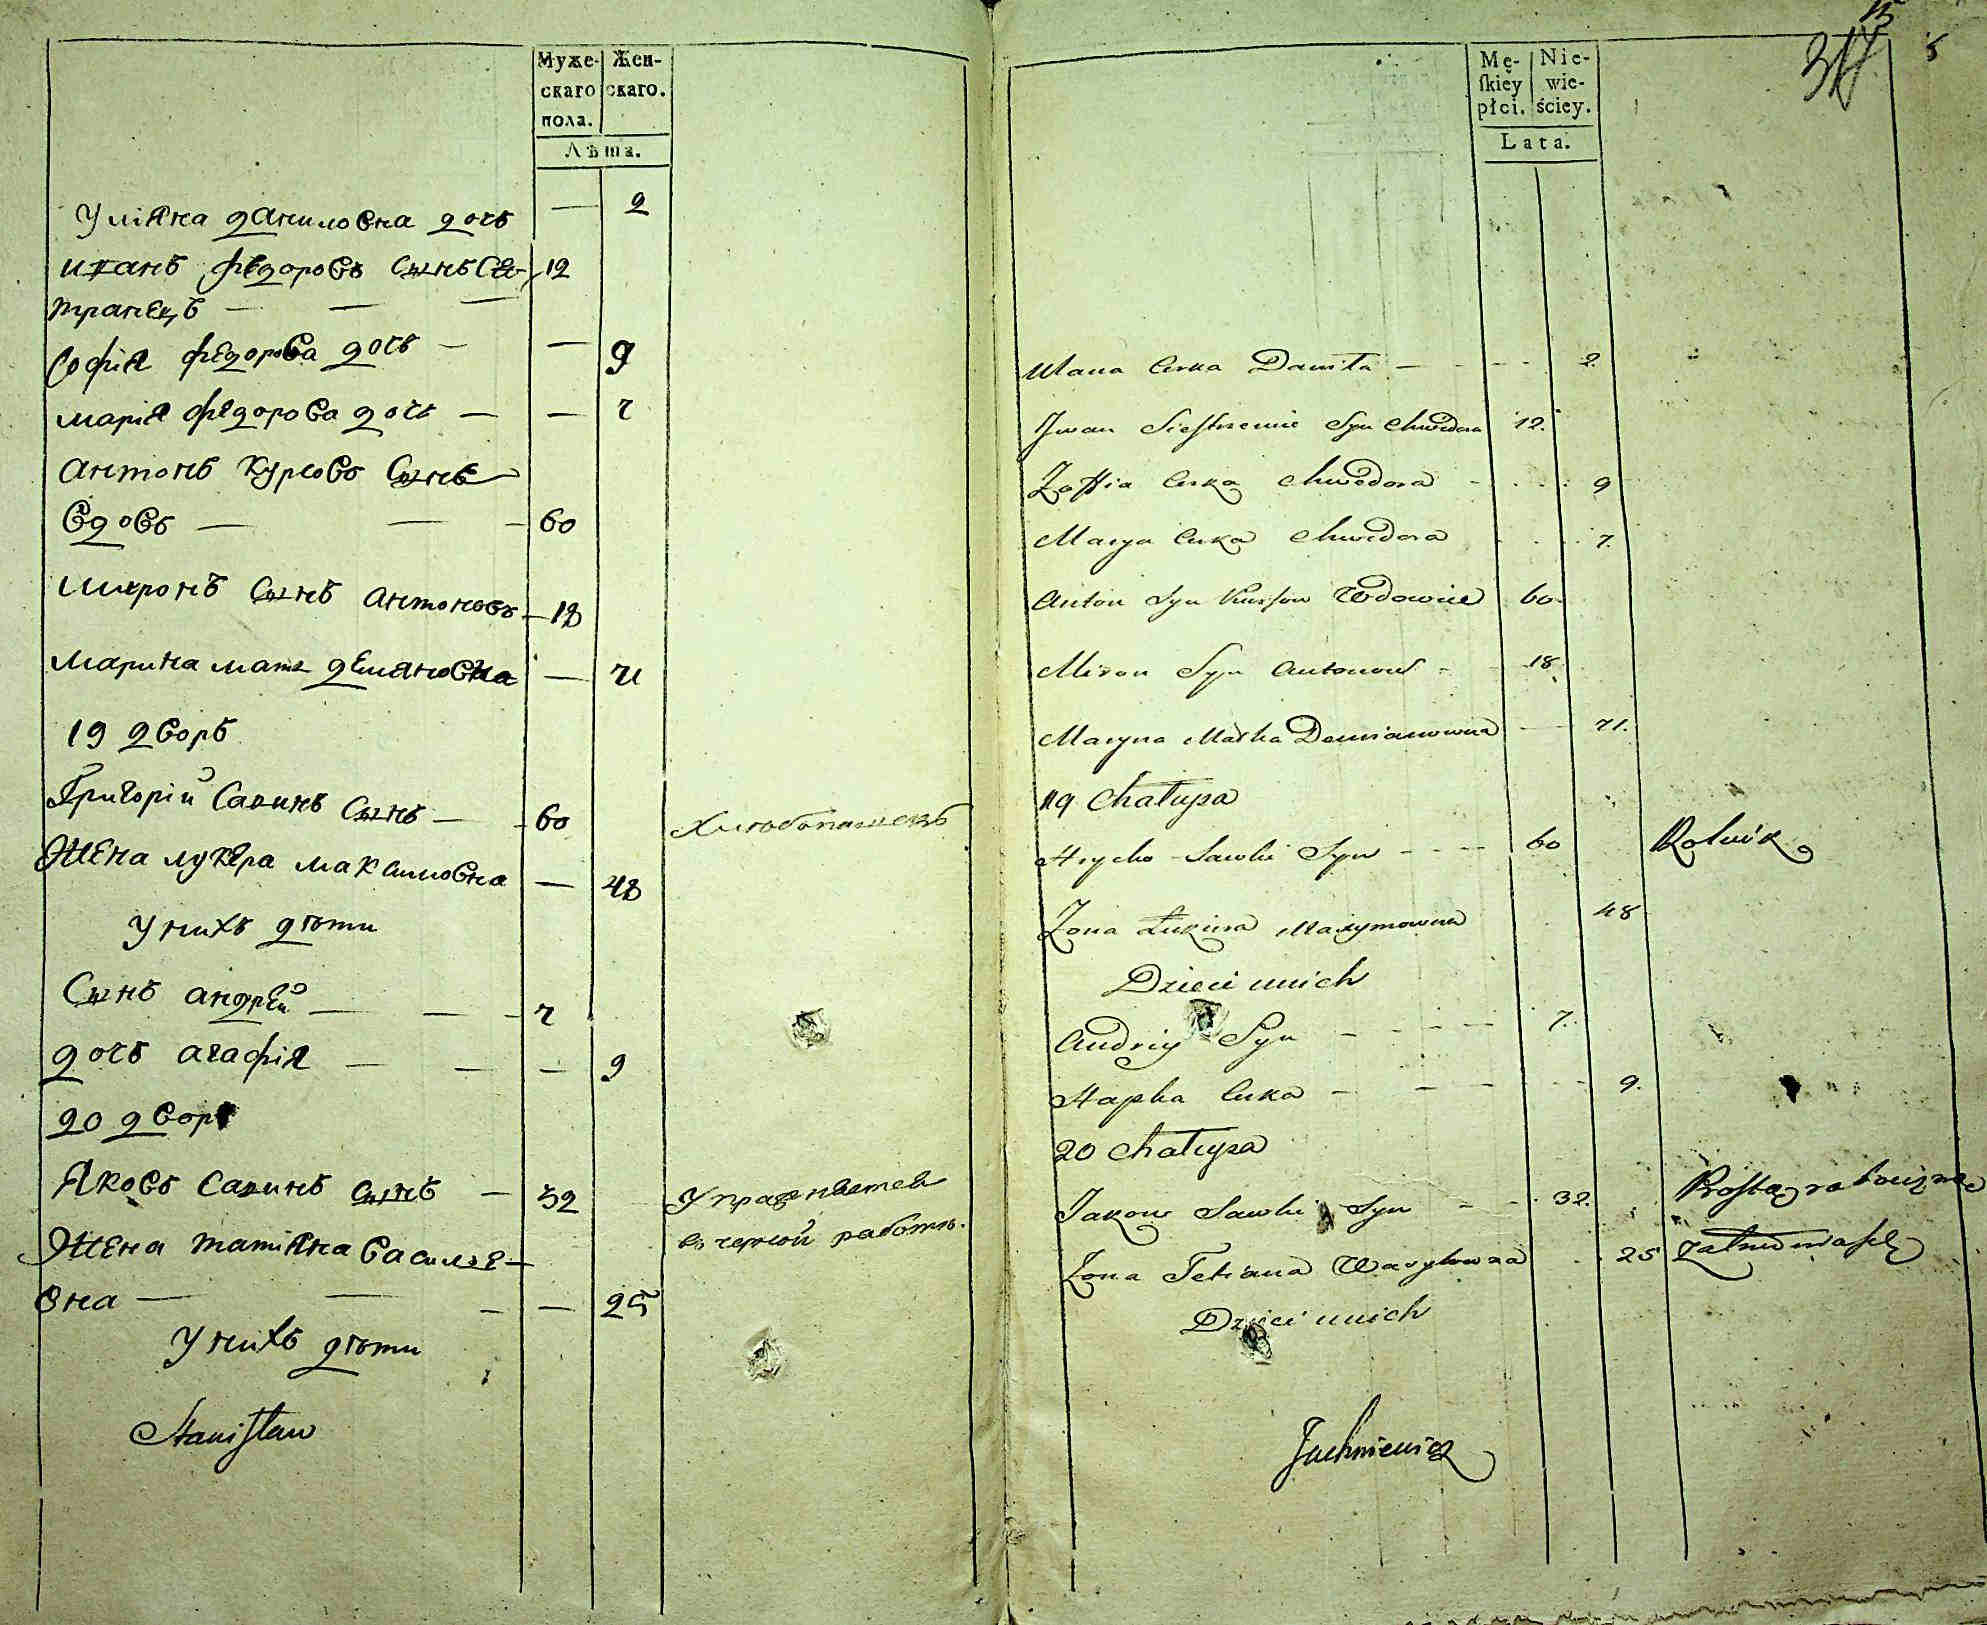 Муже-
скаго
пола.
Жен-
скаго.
Лѣта.
Уліяна даниловна дочь — 2
иванъ федоровъ сынъ Сес- 12
транецъ — — —
Софія федорова дочь — — 9
марія федорова дочь — — 7
антонъ курсовъ Сынъ
Вдовъ — — — 60
миронъ Сынъ антоновъ — 18
марина мать демяновна — 71
19 дворъ
Григорій Савинъ Сынъ — - 60 Хлебопашецъ
Жена лукера максимовна — 48
У нихъ дѣти
Сынъ андрей — — - 7
дочь агафія — — - 9
20 дворъ
Яковъ Савинъ сынъ — 32 Упражняется
въ черной работѣ.
Жена татіяна Василье-
вна — — - — 25
У нихъ дѣти
Stanisław
15
5
Mę-
ſkiey
płci.
Nie-
wie-
ściey.
Lata.
Ulana Curka Daniła — - - - - 2.
Jwan Siestrzenic Syn Chwedora 12.
Zoffia Curka Chwedora - . . . 9
Marya Curka Chwedora . . . 7.
Anton Syn Kursow Wdowiec 60.
Miron Syn Antonow - - 18.
Maryna Matka Demianowna — 71.
19 Chałupa
Hrycko Sawki Syn - - - — 60 Rolnik
Żona Łukiera Maxymowna 48
Dzieci u nich
Andriy Syn - - - - — 7.
Hapka Curka — — — - - 9.
20 Chałupa
Jakow Sawki Syn - - - 32. Prostą robocizną
Żona Tetiana Wasylowna . 25 zatrudnia się
Dzieci u nich
Juchniewicz